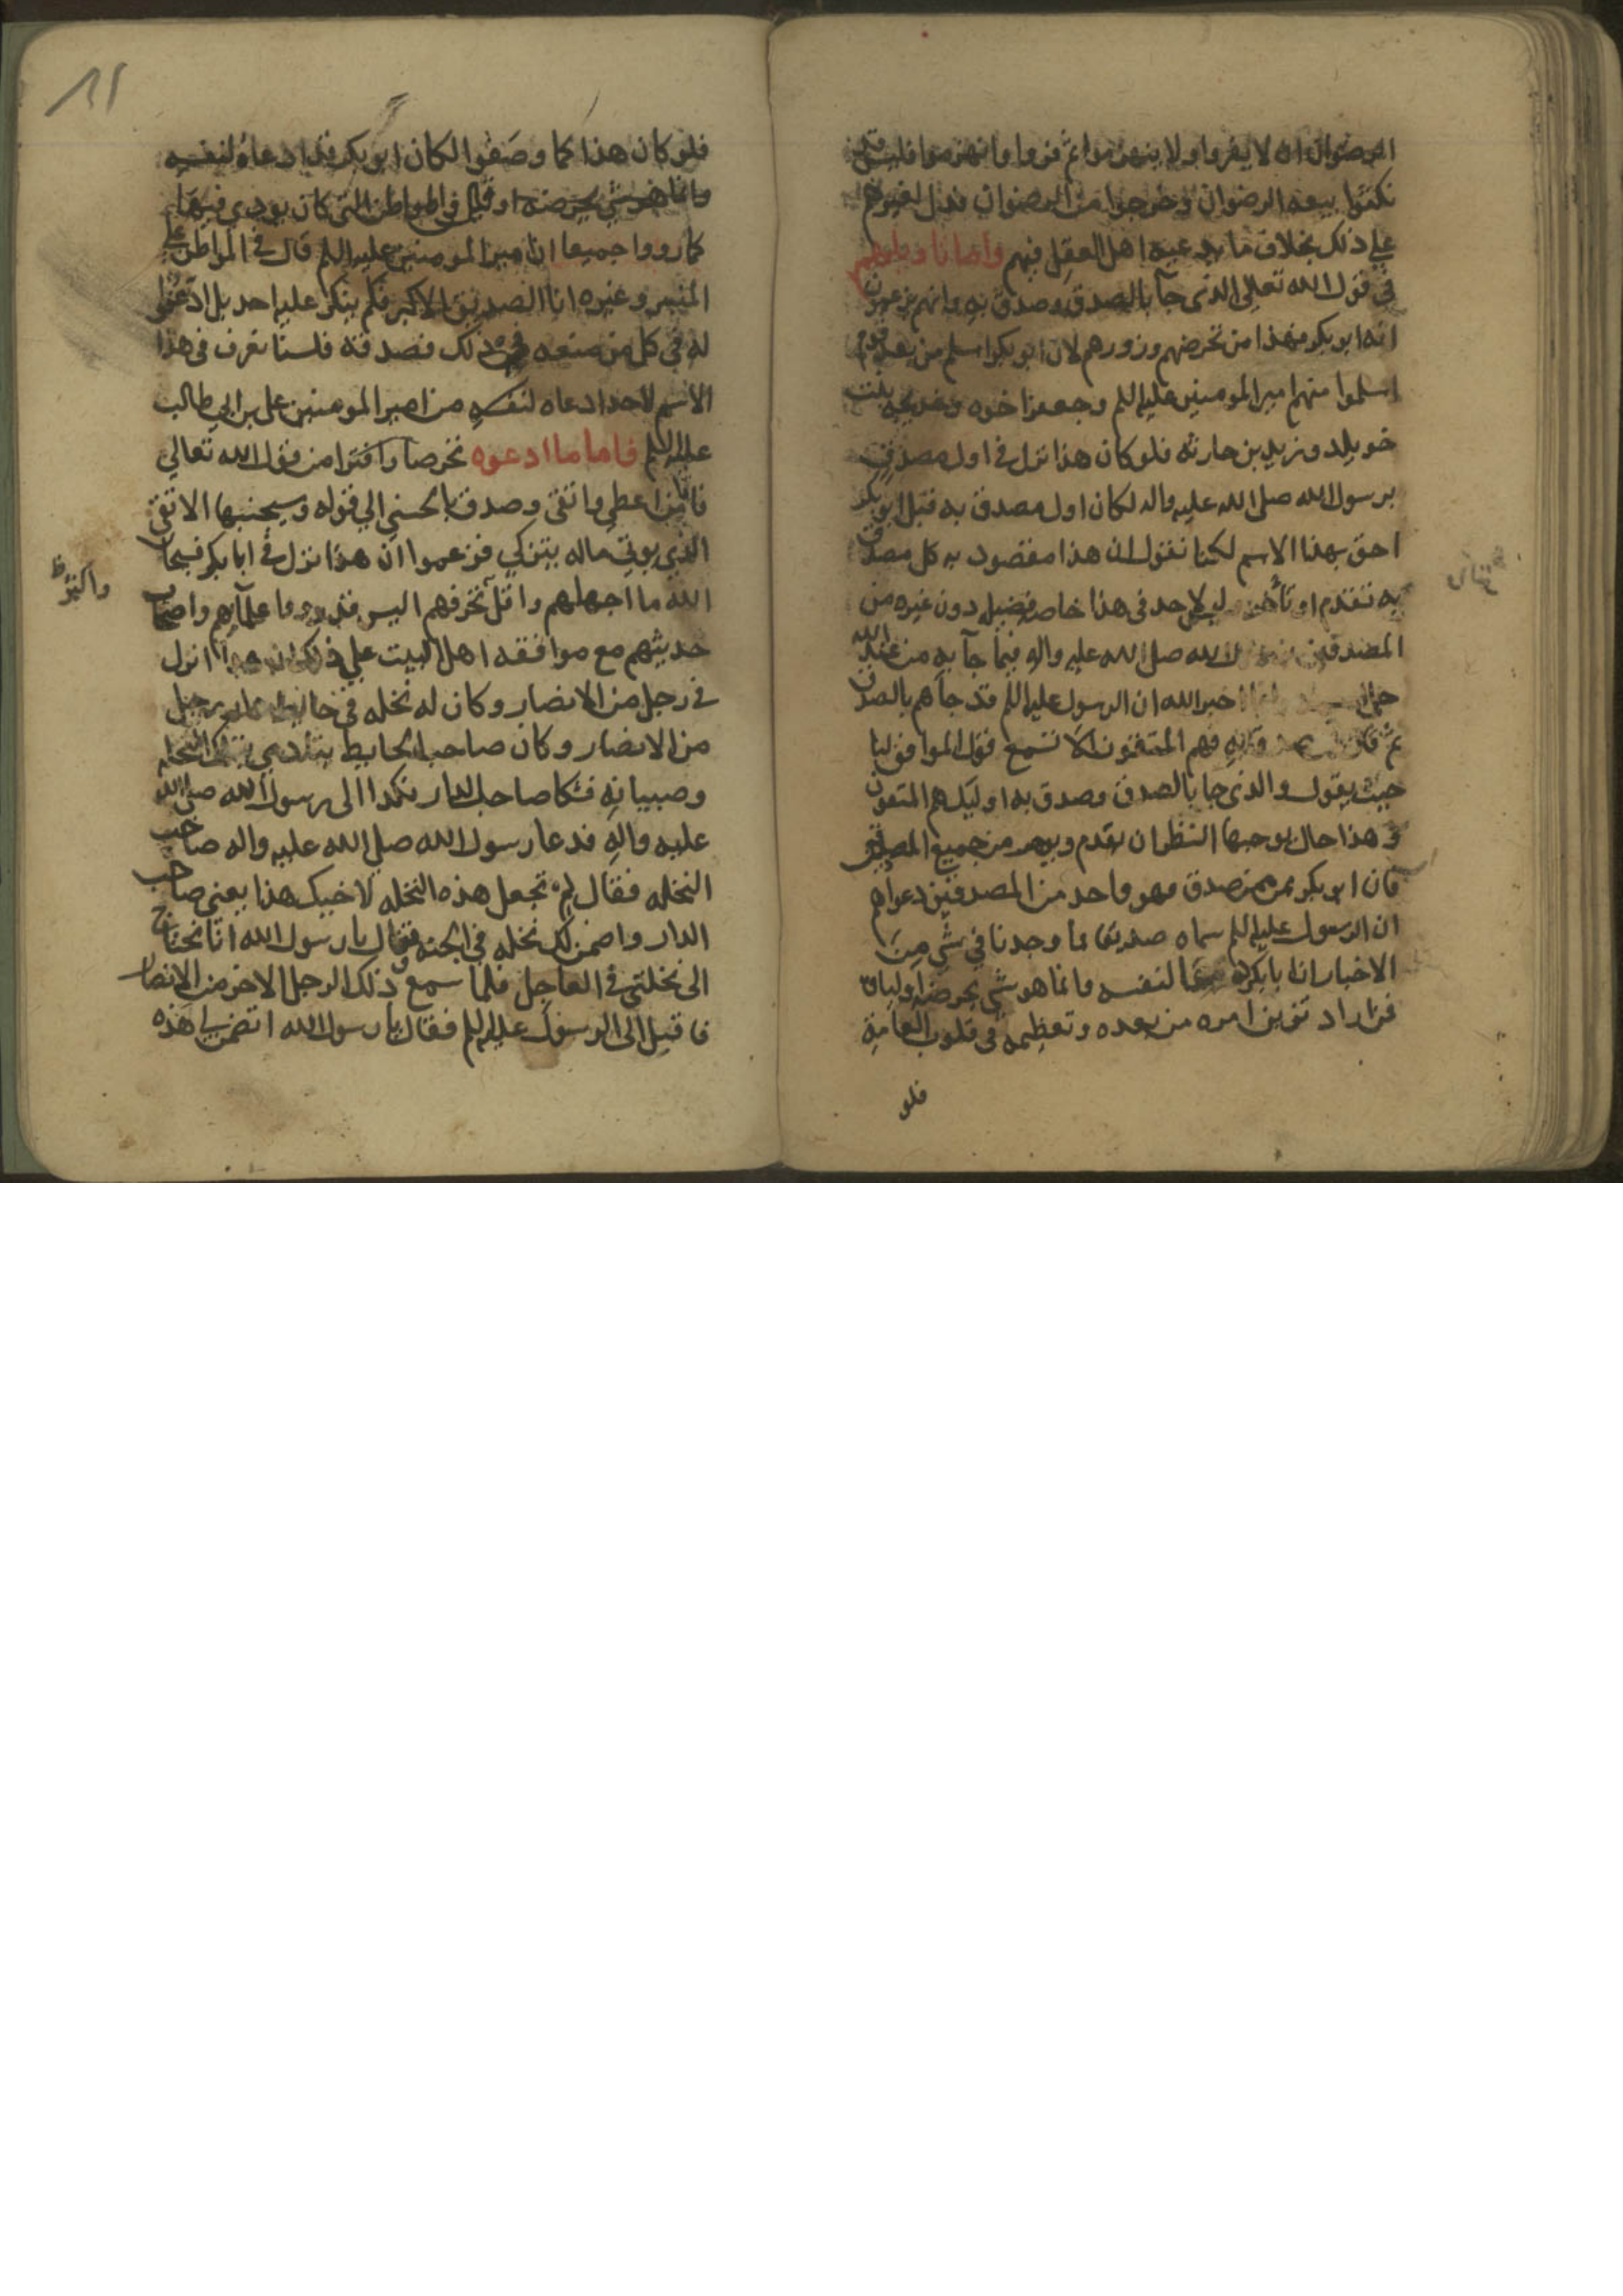 الرضوان ان لا يفروا ولا ينهزموا ثم فروا وانهزموا فليس قد
نكثوا بيعه الرضوان وخرجوا من الرضوان فدل لغيرهم
على ذلك بخلاف ما يدعيه اهل العقل فيهم واما تاويلهم
في قول الله تعالى الذي جآ بالصدق وصدق به وانهم يزعمون
انه ابو بكر فهذا من تخرصهم وزورهم لان ابو بكر اسلم من بعد قوم
اسلموا منهم امير المومنين عليه السلم وجعفر اخوه وخديجه بنت
خويلد وزيد بن حارثه فلو كان هذا نزل في اول مصدق
برسول الله صلى الله عليه واله لكان اول مصدق به قبل ابو بكر
احق بهذا الاسم لكنا نقول ان هذا مقصود به كل مصدق
به تقدم او تأخر ليس لاحد في هذا خاصه فضيله دون غيره من
المصدقين الله صلى الله عليه واله فيما جآ به من عند الله
اخبر الله ان الرسول عليه السلم قد جاهم بالصدق
ثم قال فهم المتقون الا تسمع قول الموافق لنا
حيث يقول والذي جا بالصدق وصدق به اوليك هم المتقون
في هذا حال يوجبها النظر ان تقدم من جميع المصدقين
فان ابو بكر ممن صدق فهو واحد من المصدقين دعواهم
ان الرسول عليه السلم سماه صديقا ما وجدنا في شي من
الاخبار ان ابا بكر لنفسه وانما هو شي تخرصه اولياؤه
فمن اراد تزيين امره من بعده وتعظيمه في قلوب العامة
فلو
فلو كان هذا كما وصفوا لكان ابو بكر قد ادعاه لنفسه
وانما هو شي تخرصته او قيل في المواطن التي كان يودي فيها
كما رووا جميعا ان امير المومنين عليه السلم قال في المواطن على
المنبر وغيره انا الصديق الاكبر فلم ينكر عليه احد بل ادعوا
له في كل من سمعه ذلك فصدقه فلسنا نعرف في هذا
الاسم لاحد ادعاه لنفسه من امير المومنين علي بن ابي طالب
عليه السلم فاما ما ادعوه تخرصا وافترا من قول الله تعالى
فاما من اعطي واتقي وصدق بالحسني الي قوله وسيجنبها الاتقى
الذي يوتي ماله يتزكي فزعموا ان هذا نزل في ابا بكر فسبحان
الله ما اجهلهم واقل تخوفهم اليس قد رووا علمآؤهم واصحاب
حديثهم مع موافقه اهل البيت على ذلك ان هذا انزل
في رجل من الانصار وكان له نخله في حايط رجل
من الانصار وكان صاحب الحايط يتاذي بتلك النخله
وصبيانه فشكا صاحب الدار نكدا الى رسول الله صلى الله
عليه واله فدعا رسول الله صلي الله عليه واله صاحب
النخله فقال له تجعل هذه النخله لاخيك هذا يعني صاحب
الدار واضمن لك نخله في الجنه فقال يا رسول الله انا نحتاج
الى نخلتي في العاجل فلما سمع ذلك الرجل الاخر من الانصار
فاقبل الى الرسول عليه السلم فقال يا رسول الله اتضمن لي هذه